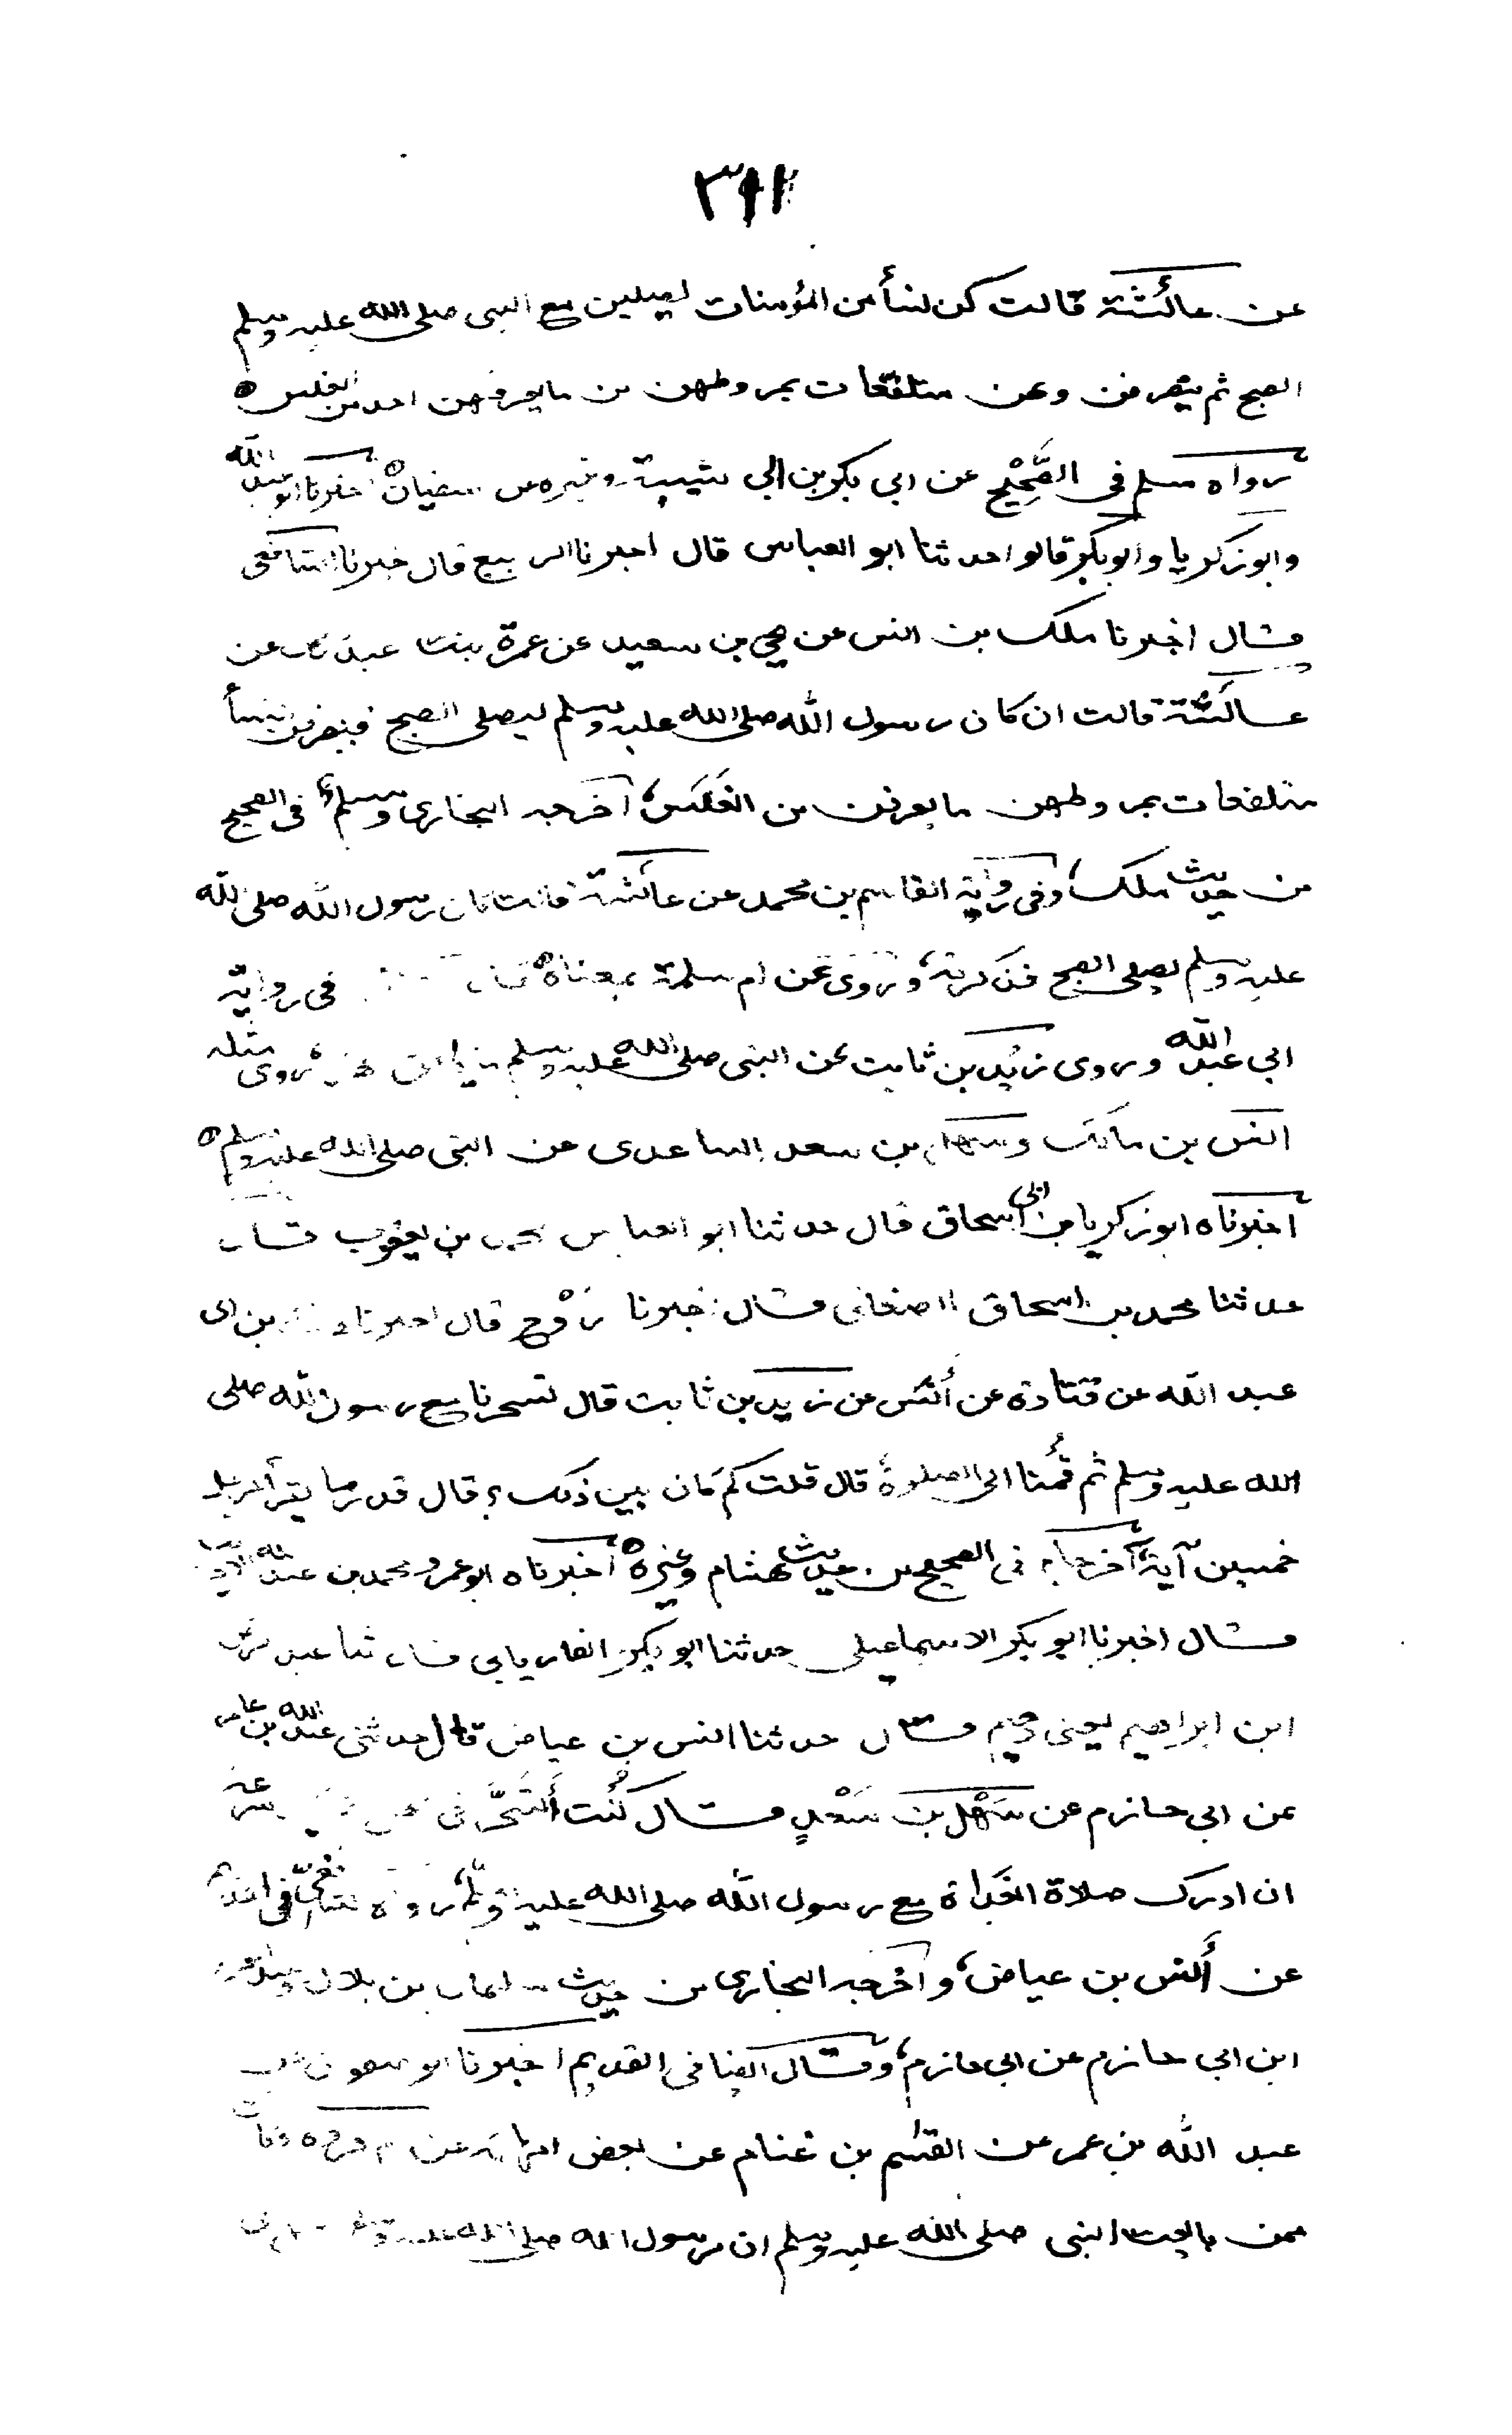 عن عائشة قالت كن نسأ من المؤمنات يصلين مع النبى صلى الله عليه وسلم
الصبح ثم ينصرفن وهن متلفعات بمروطهن من ما يعرفهن احد من الغلس ه
رواه مسلم فى الصَّحِيْحِ عن ابى بكر بن ابي شيبة وغيره عن سفيان ه اخبرنا ابو عبد الله
وابو زكريا وابو بكر قالوا حدثنا ابو العباس قال اخبرنا الربيع قال اخبرنا الشافعى
قال اخبرنا ملك بن انس عن يحيى بن سعيد عن عمرة بنت عبد عن
عائشة قالت ان كان رسول الله صلى الله عليه وسلم ليصلى الصبح فينصرفن نسأ
متلفعات بمروطهن ما يعرفن من الغلس، اخرجه البخارى ومسلم فى الصحيح
من حديث ملك، وفى رواية القاسم بن محمد عن عائشة قالت كان رسول الله صلى الله
عليه وسلم يصلى الصبح فذكرته، وروى عن ام سلمة بمعناه قال فى رواية
ابي عبد الله وروى زيد بن ثابت عن النبى صلى الله عليه وسلم ما يوافق هذا وروى مثله
انس بن مالك وسهل بن سعد الساعدى عن النبى صلى الله عليه وسلم ه
اخبرناه ابو زكريا بن ابى اسحاق قال حدثنا ابو العباس محمد بن يعقوب قال
حدثنا محمد بن اسحاق الصغانى قال اخبرنا رَوْح قال اخبرنا بن ابى
عبد الله عن قتادة عن أنس عن زيد بن ثابت قال تسحرنا مع رسول الله صلى
الله عليه وسلم ثم قُمنا الى الصلوة قال قلت كم كان بين ذلك؟ قال قدر ما يقرأ الرجل
خمسين آية، اخرجاه فى الصحيح من حديث هشام وغيره ه اخبرناه ابو عمرو محمد بن عبد الله
قال اخبرنا ابو بكر الاسماعيلى حدثنا ابو بكر الفاريابى قال ثنا عبد
ابن ابراهيم يعنى دحيم قال حدثنا انس بن عياض قال حدثنى عبد الله بن عامر
عن ابى حازم عن سَهْل بن سَعْدٍ قال كُنت أتسحَّر فى
ان ادرك صلاة الغَداة مع رسول الله صلى الله عليه وسلم، رواه الشافعى فى
عن أنس بن عياض، واخرجه البخارى من حديث سليمان بن بلال
ابن ابى حازم عن ابى حازم، وقال ايضا فى القديم اخبرنا ابو صفوان عن
عبد الله بن عمر عن القسم بن غنام عن بعض امهاته عن ام فروه وكانت
ممن بايعت النبى صلى الله عليه وسلم ان رسول الله صلى الله عليه